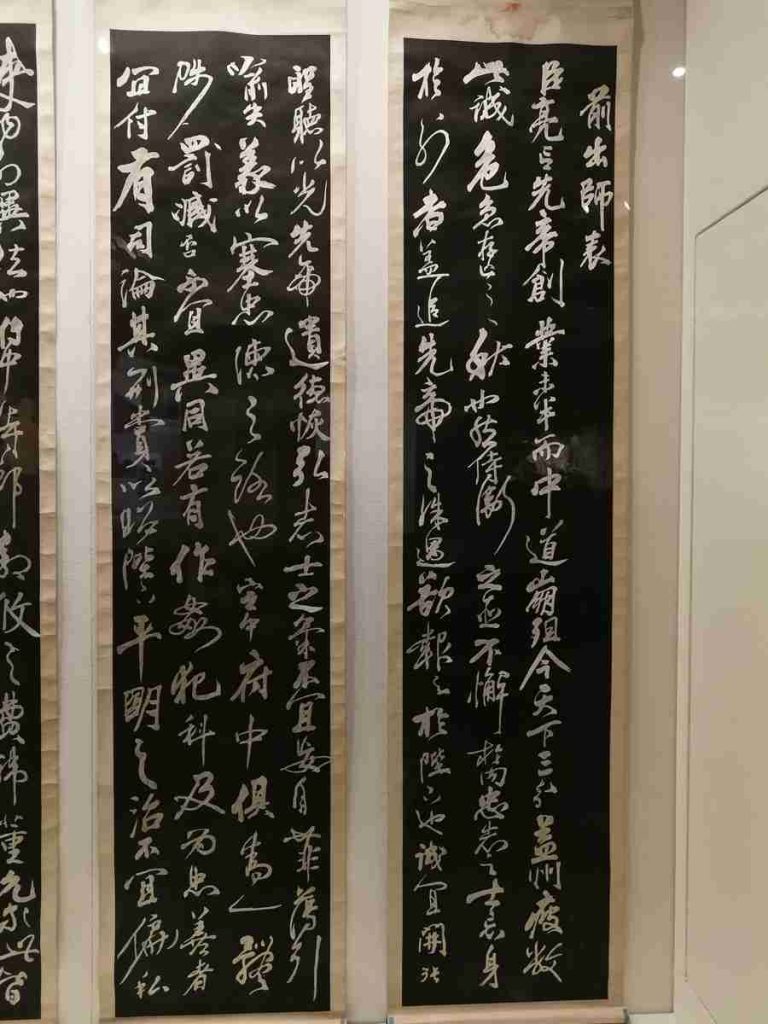 前出師表
臣亮言先帝創業未半而中道崩殂今天下三分益州疲敝
此誠危急存亡之秋也然侍衛之臣不懈於內忠志之士忘身
於外者蓋追先帝之殊遇欲報之於陛下也誠宜開張
聖聽以光先帝遺德恢弘志士之氣不宜妄自菲薄引
喻失義以塞忠諫之路也宮中府中俱為一體
陟罰臧否不宜異同若有作姦犯科及為忠善者
宜付有司論其刑賞以昭陛下平明之治不宜偏私
使內外異法也侍中侍郎郭攸之費禕董允等此皆